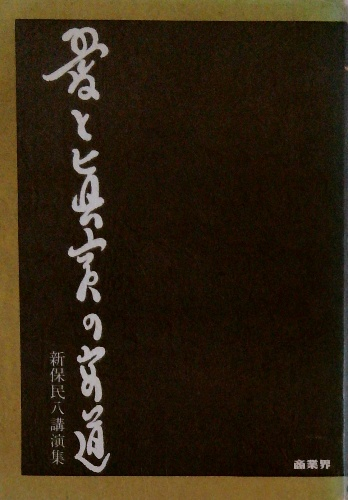 愛と眞實の商道
新保民八講演集
商業界